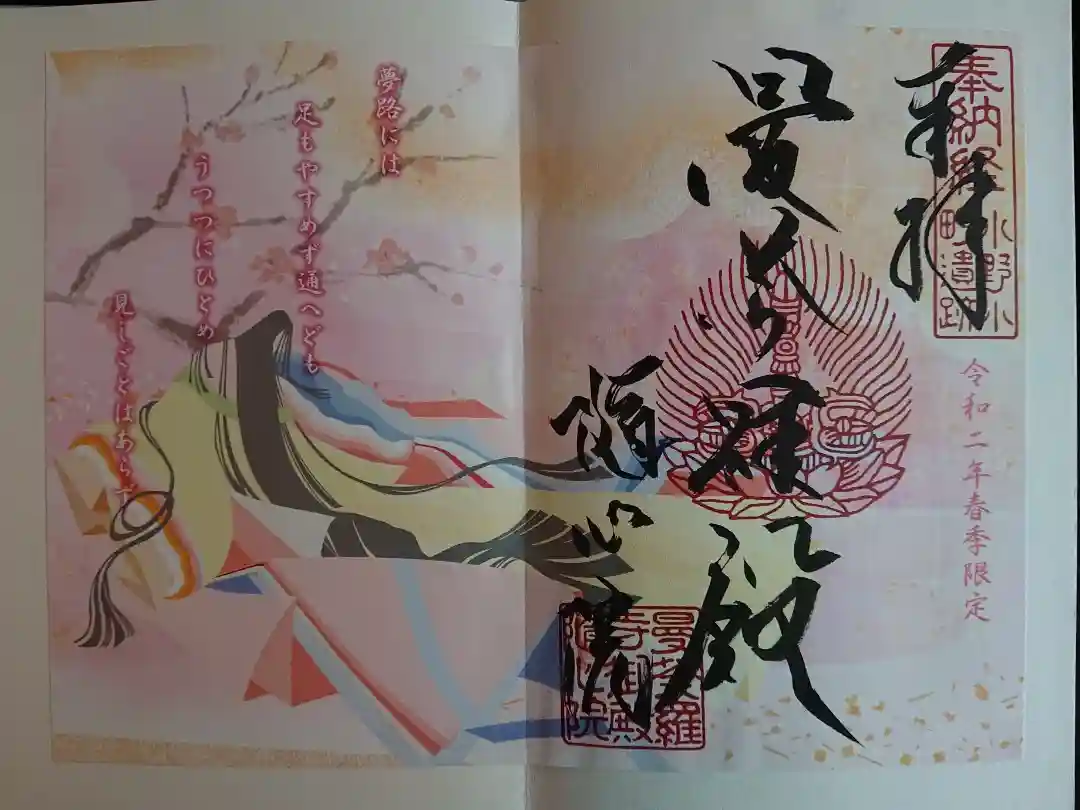 奉納経
小野小
町遺跡
令和二年春季限定
奉拝
曼荼羅殿
隨心院
曼荼羅
寺御殿
隨心院
夢路には
足もやすめず通へども
うつつにひとめ
見しごとはあらず